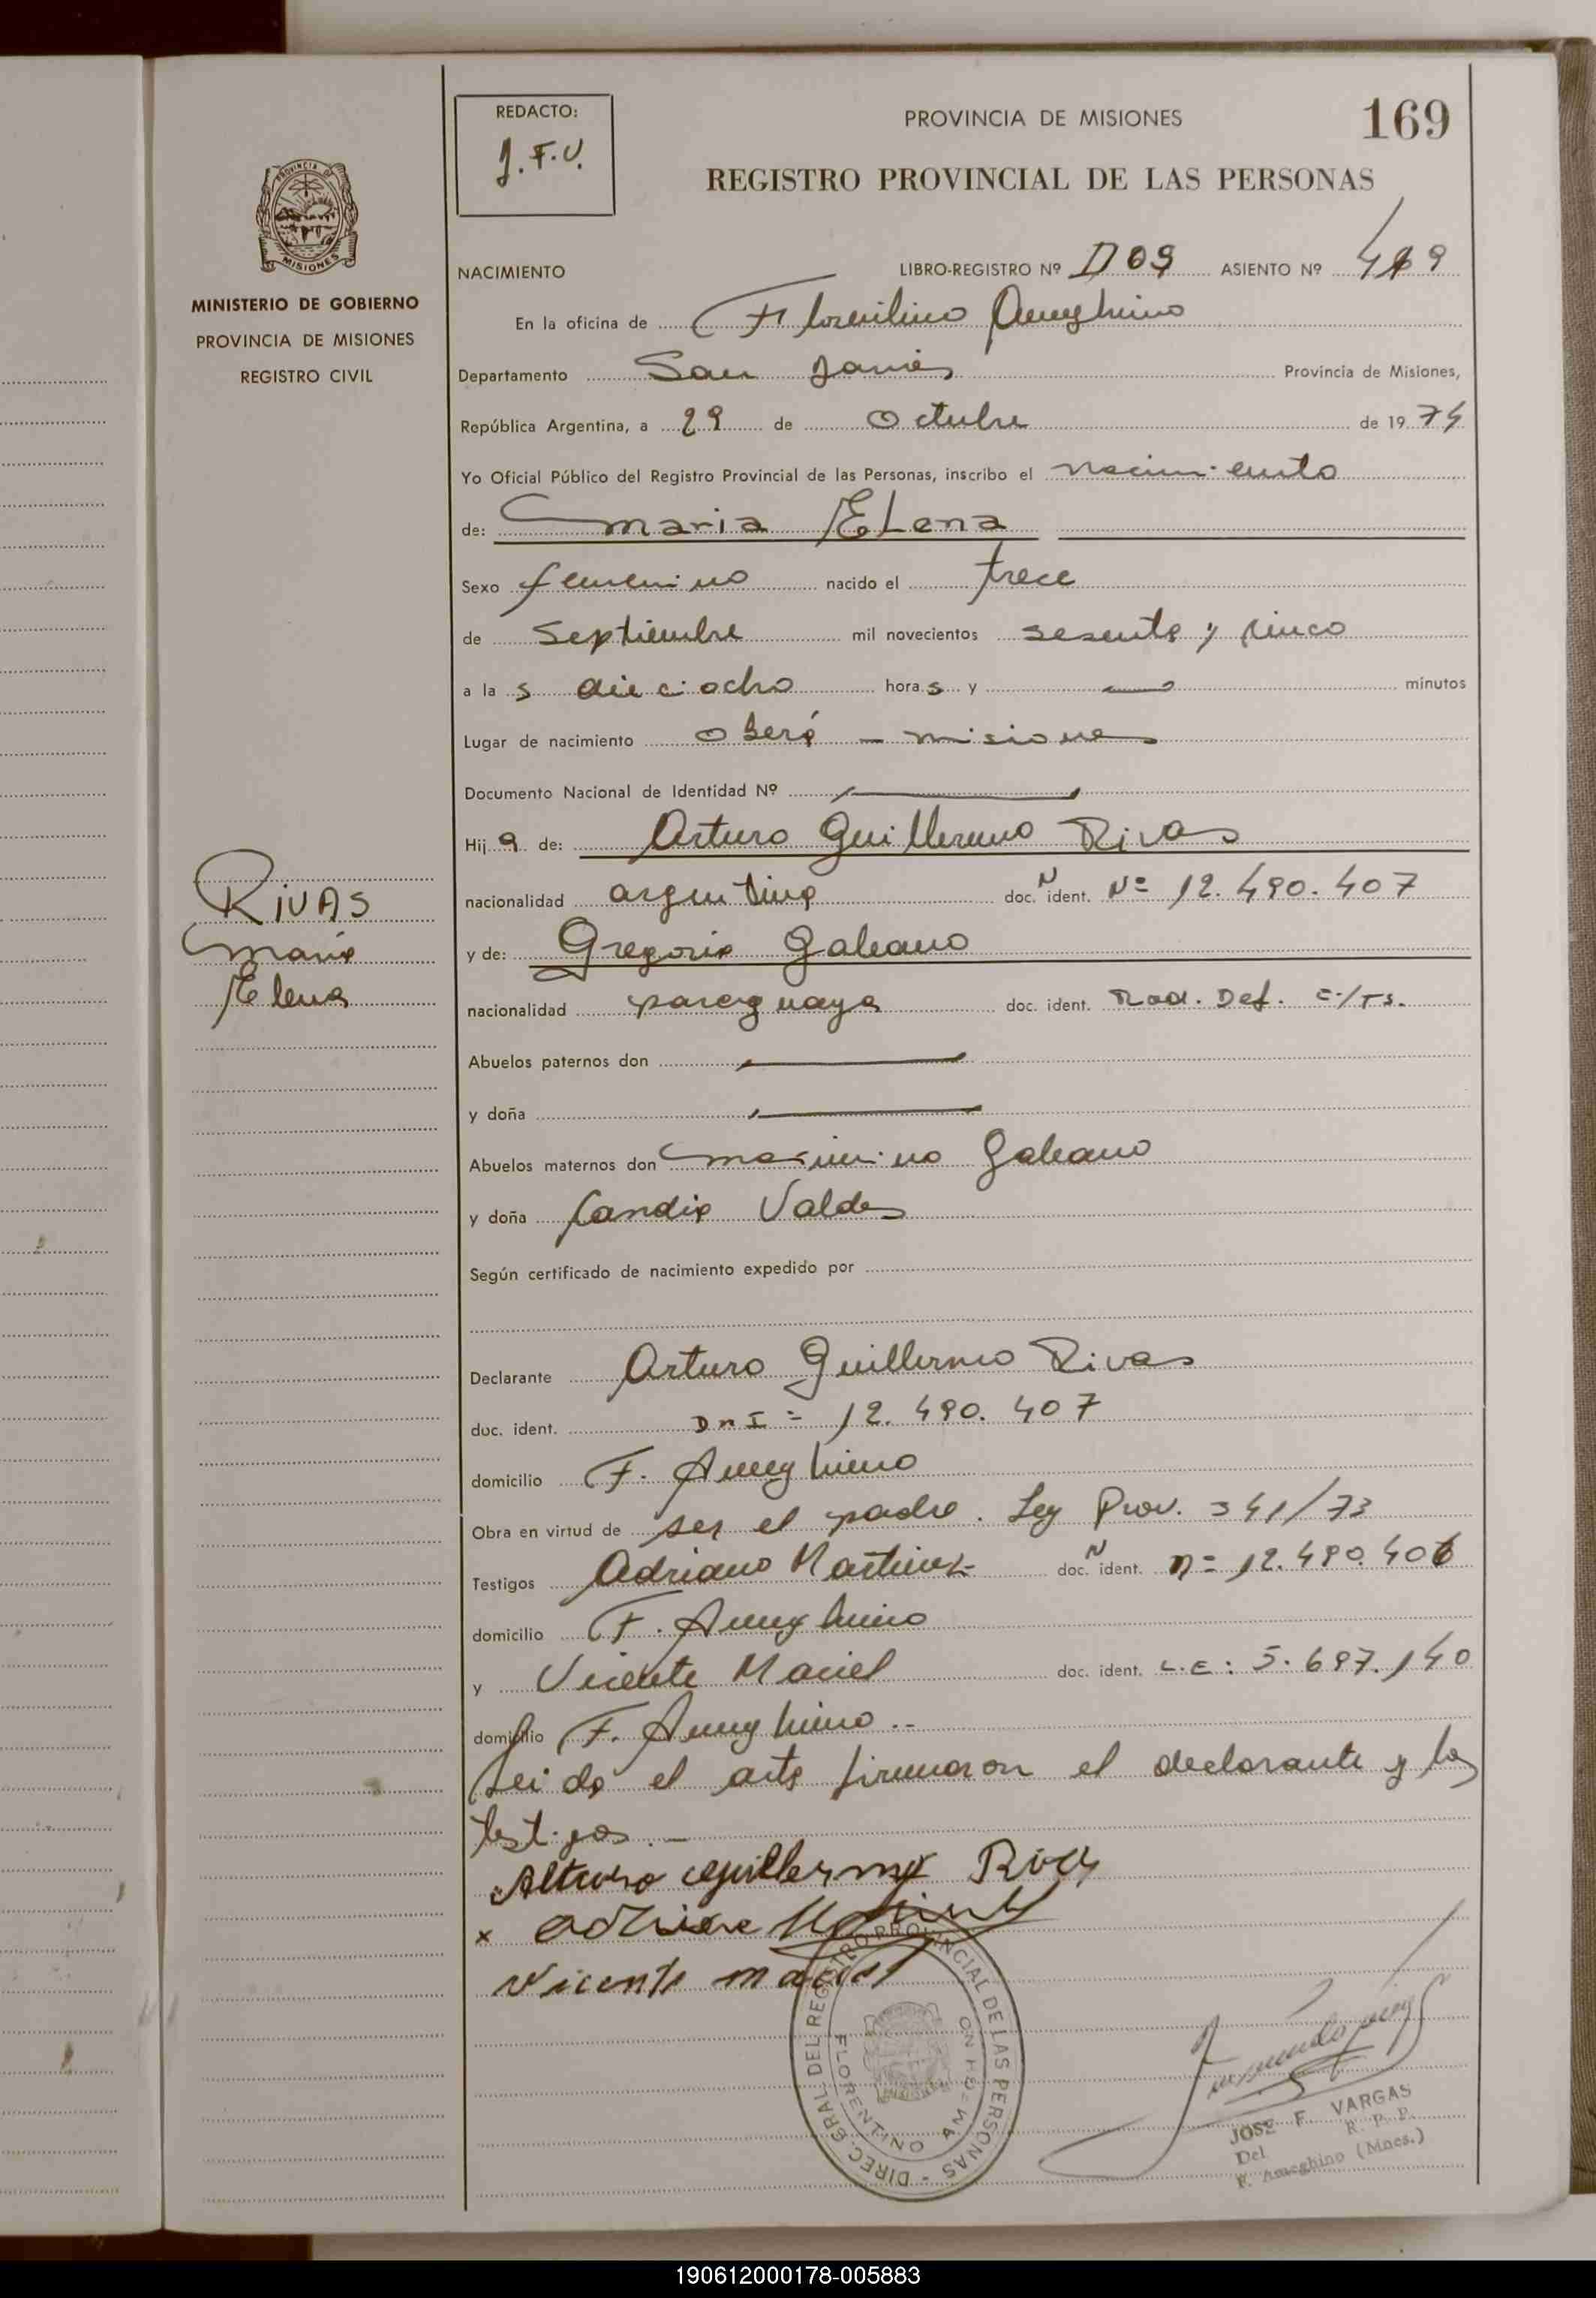 REDACTO:
J.F.V.
PROVINCIA DE MISIONES
169
REGISTRO PROVINCIAL DE LAS PERSONAS
PROVINCIA DE
MISIONES
MINISTERIO DE GOBIERNO
PROVINCIA DE MISIONES
REGISTRO CIVIL
NACIMIENTO LIBRO-REGISTRO Nº DOS ASIENTO Nº
En la oficina de Florentino Ameghino
Departamento San Javier Provincia de Misiones,
República Argentina, a 29 de Octubre de 1974
Yo Oficial Público del Registro Provincial de las Personas, inscribo el nacimiento
de: Maria Elena
Sexo femenino nacido el trece
de Septiembre mil novecientos sesenta y cinco
a las dieciocho horas y — minutos
Lugar de nacimiento Oberá - Misiones
Documento Nacional de Identidad Nº —
Hija de: Arturo Guillermo Rivas
nacionalidad argentina doc. N ident. Nº 12.490.407
y de: Gregoria Galeano
nacionalidad paraguaya doc. ident. Rad. Def. E/Ts.
Abuelos paternos don —
y doña —
Abuelos maternos don Maximino Galeano
y doña Candia Valdes
Según certificado de nacimiento expedido por
Declarante Arturo Guillermo Rivas
doc. ident. DNI = 12.490.407
domicilio F. Ameghino
Obra en virtud de ser el padre. Ley Prov. 341/73
Testigos Adriano Martinez doc. N ident. n= 12.490.406
domicilio F. Ameghino
y Vicente Maciel doc. ident. L.E: 5.697.140
domicilio F. Ameghino..
Leida el acta firmaron el declarante y los
testigos.—
Alturo Guillermo Rivas
x
Vicente Maciel
RIVAS
Maria
Elena
DIREC. GRAL. DEL REGISTRO PROVINCIAL DE LAS PERSONAS -
FLORENTINO AMEGHINO
JOSE F. VARGAS
Del R. P. P.
F. Ameghino (Mnes.)
190612000178-005883